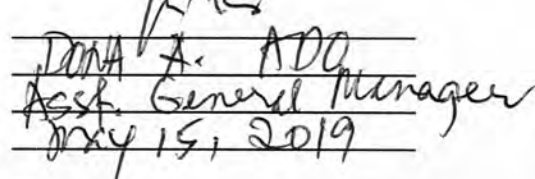 DONA A. ADO
Asst. General Manager
May 15, 2019